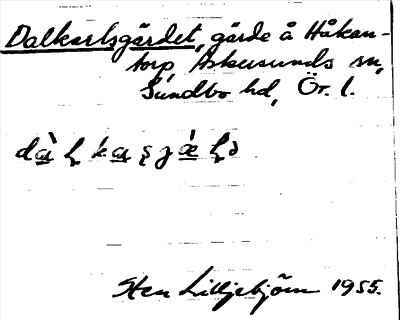 Dalkarlsgärdet, gärde å Håkan-
torp Askersunds sn,
Sundbo hd, Ör. l.
Sten Liljebjörn 1955.